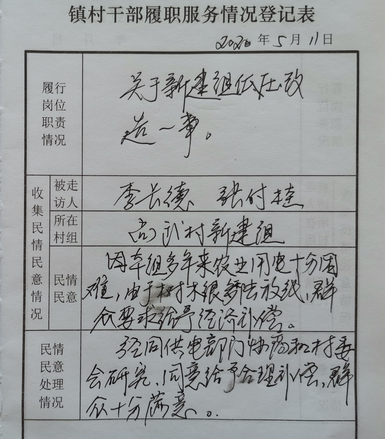 镇村干部履职服务情况登记表
2020年5月11日
履行
岗位
职责
情况
关于新建组低压改
造一事。
收集民情民意情况
被走
访人
李长德 张付桂
所在
村组
尚武村新建组
民情
民意
因本组多年来农业用电十分困
难,由于树木很多无法放线,群
众要求给予经济补偿。
民情
民意
处理
情况
经同供电部门协商和村委
会研究,同意给予合理补偿,群
众十分满意。